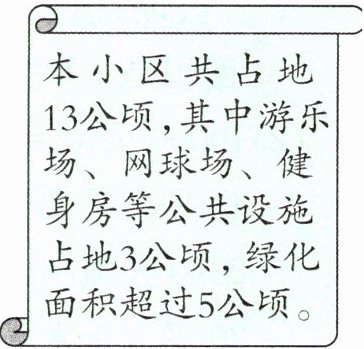 本小区共占地
13公顷，其中游乐
场、网球场、健
身房等公共设施
占地3公顷，绿化
面积超过5公顷。